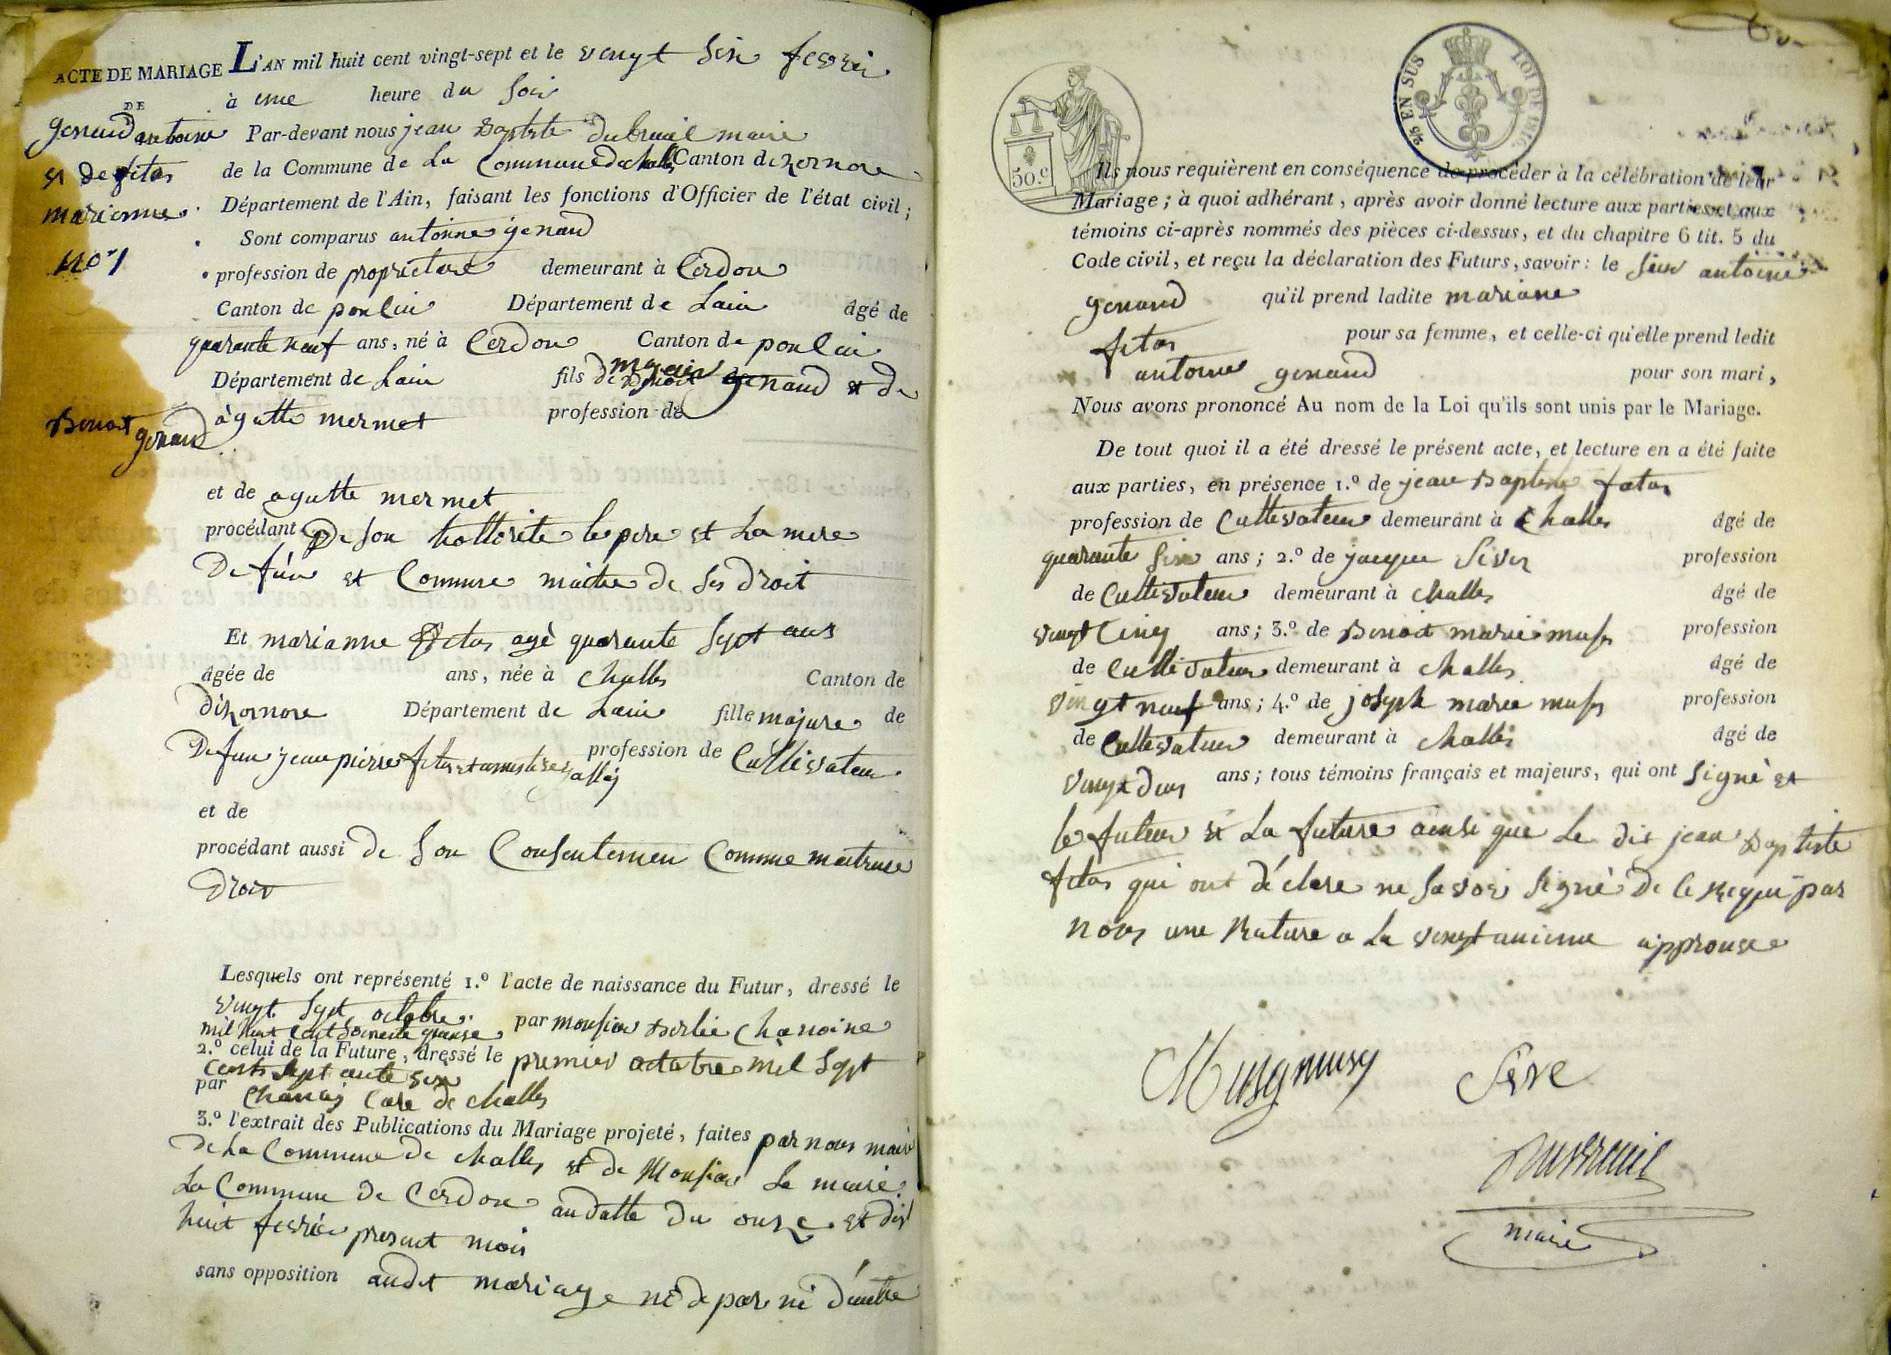 ACTE DE MARIAGE L'AN mil huit cent vingt-sept et le vingt six fevrié
DE à une heure du soir
genand antoine Par-devant nous jean Baptiste dubreuil maire
et de fétas de la Commune de La Commune de challes Canton dizernore
marianne Département de l'Ain, faisant les fonctions d'Officier de l'état civil;
Sont comparus antoinne genand
no 1 profession de propriétaire demeurant à Cerdon
Canton de poncin Département de Lain âgé de
quarante neuf ans, né à Cerdon Canton de poncin
Département de Lain fils majeur de Benoit genand et de
Benoit genand
agatte mermet profession de
et de agatte mermet
procédant De son hottorité le pere et La mere
Defun et Comme maitre de ses droit
Et marianne fétas agé quarante sept ans
âgée de ans, née à challes Canton de
dizernore Département de Lain fille majure de
Defun jean pierre fétas profession de Cultivateur
et de
procédant aussi de son Consentemen Comme maitresse
droit
Lesquels ont représenté 1.º l'acte de naissance du Futur, dressé le
vingt sept octobre par monsieur Chanoine
mil huit cent
2.º celui de la Future, dressé le premier octobre mil sept
cents sept ante six
par Chanay Curé de challes
3.º l'extrait des Publications du Mariage projeté, faites par nous maire
De La Commune de challes et de Monsieur Le maire
La Commune de Cerdon audatte du onze et dix
huit fevrié present mois
sans opposition audit mariage ni de par ni d'autre
50 c.
25 EN SUS LOI DE 1816
Ils nous requièrent en conséquence de procéder à la célébration de leur
Mariage; à quoi adhérant, après avoir donné lecture aux parties et aux
témoins ci-après nommés des pièces ci-dessus, et du chapitre 6 tit. 5 du
Code civil, et reçu la déclaration des Futurs, savoir: le sieur antoine
genand qu'il prend ladite mariane
fétas pour sa femme, et celle-ci qu'elle prend ledit
antoine genand pour son mari,
Nous avons prononcé Au nom de la Loi qu'ils sont unis par le Mariage.
De tout quoi il a été dressé le présent acte, et lecture en a été faite
aux parties, en présence 1.º de jean Baptiste fétas
profession de Cultivateur demeurant à Challes âgé de
quarante six ans; 2.º de jacque Seve profession
de Cultivateur demeurant à challes âgé de
vingt cinq ans; 3.º de Benoit marie profession
de Cultivateur demeurant à challes âgé de
vingt neuf ans; 4.º de joseph marie profession
de Cultivateur demeurant à challes âgé de
vingt deux ans; tous témoins français et majeurs, qui ont signé et
le futeur et La future ainsi que Le dit jean Baptiste
fétas qui ont déclaré ne savoir signé de ce requi par
nous une Rature a La vingt aprouvée
Seve
Dubreuil
maire